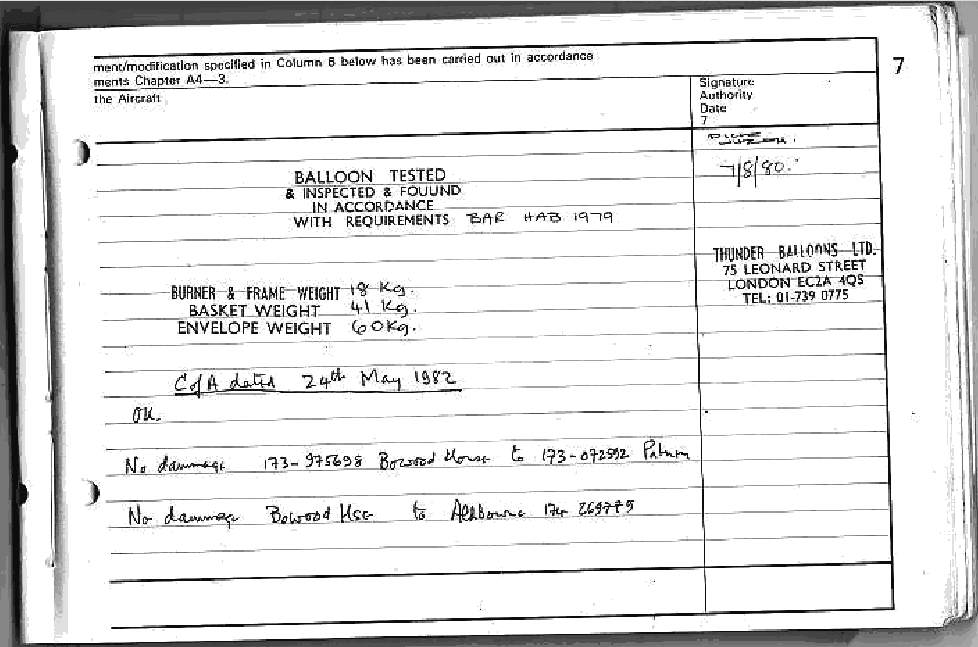 ment/modification specified in Column 6 below has been carried out in accordance
ments Chapter A4—3.
the Aircraft
Signature
Authority
Date
7
7
7/8/80.
BALLOON TESTED
& INSPECTED & FOUUND
IN ACCORDANCE
WITH REQUIREMENTS BAR HAB 1979
THUNDER BALLOONS LTD.
75 LEONARD STREET
LONDON EC2A 4QS
TEL: 01-739 0775
BURNER & FRAME WEIGHT 18 Kg.
BASKET WEIGHT 41 Kg.
ENVELOPE WEIGHT 60Kg.
CofA dated 24th May 1982
OK.
No dammage 173-975698 Bowood House to 173-072992
No dammage Bowood Hse to Aldbourne 174 269775